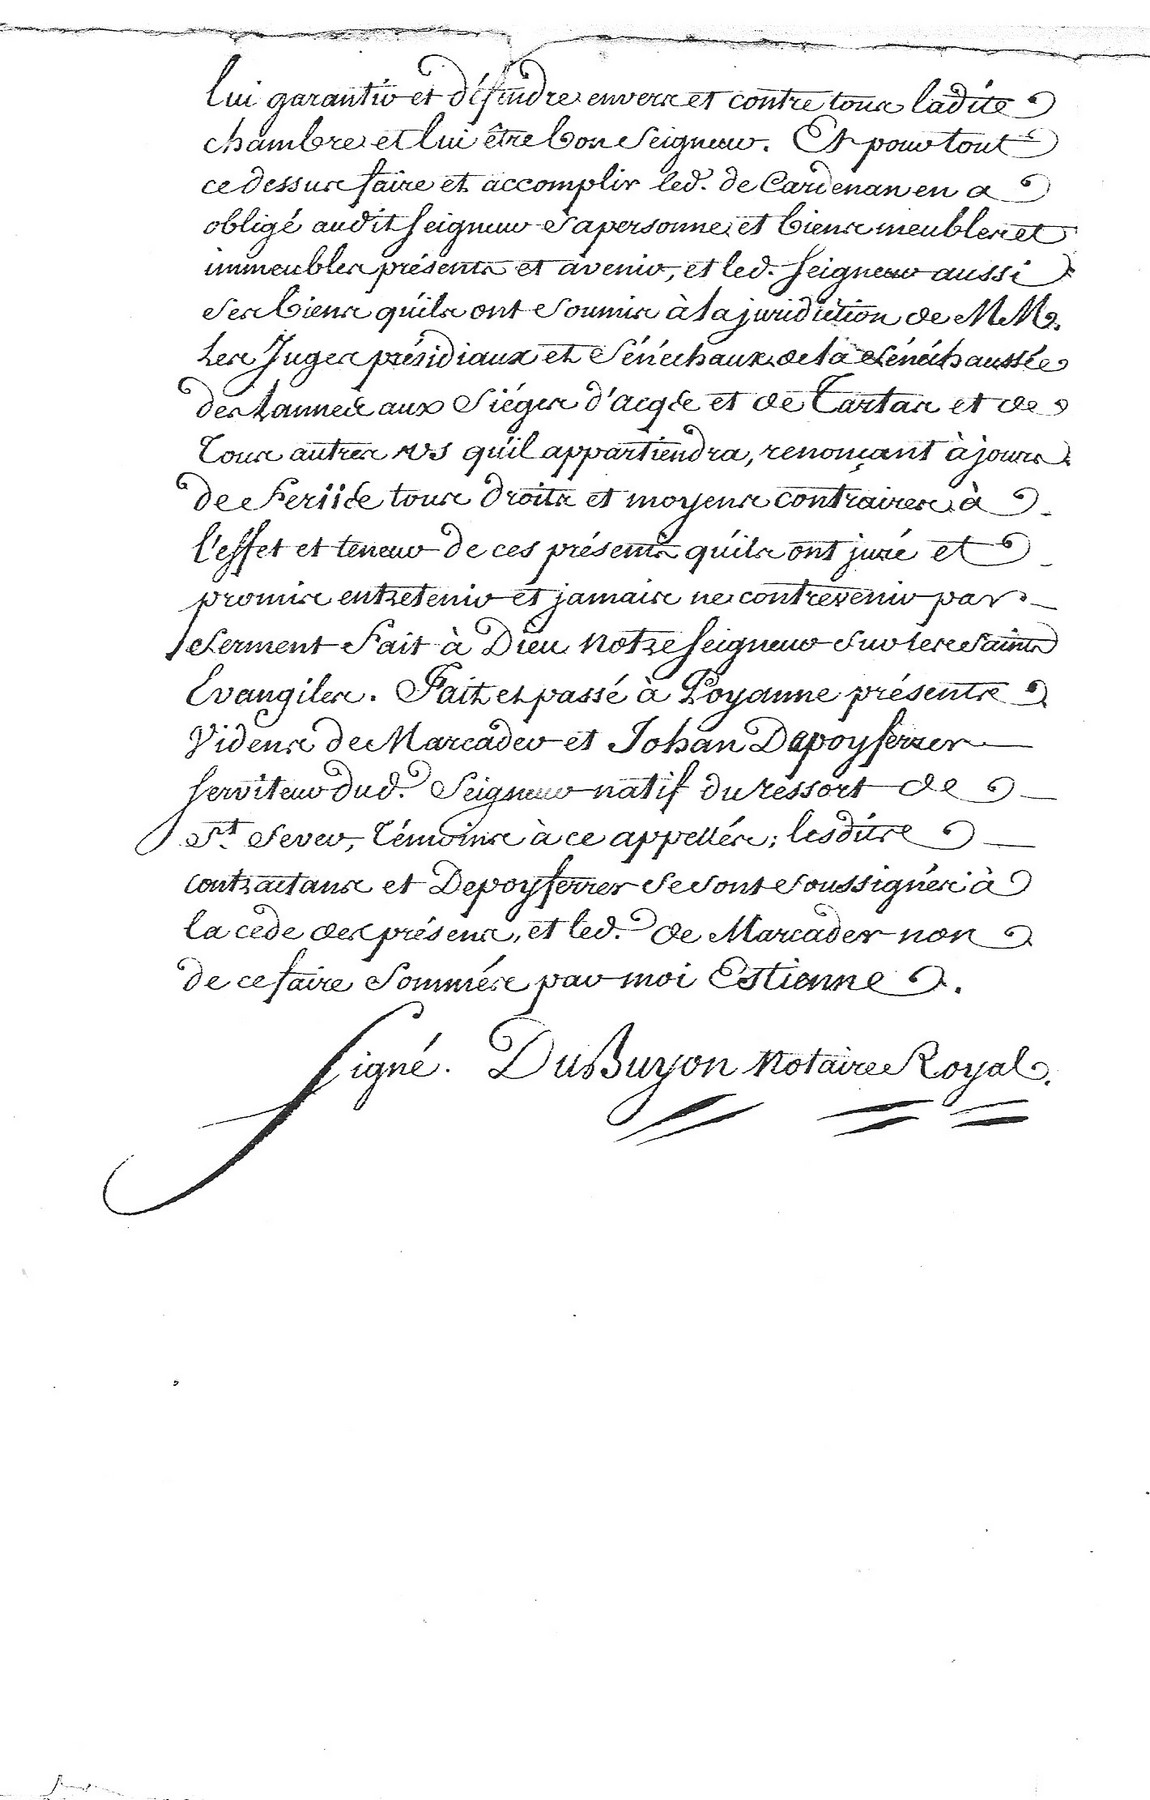 lui garantir et déffendre envers et contre tous ladite
chambre et lui être bon Seigneur. Et pour tout
ce dessus faire et accomplir led. de Cardenan en a
obligé audit Seigneur sa personne et biens meubles et
immeubles présents et avenir, et led. Seigneur aussi
ses biens qu'ils ont soumis à la juridiction de MM.
les Juges présidiaux et Sénéchaux de la sénéchaussée
des Lannes aux Siéges d'acqs et de Tartas et de
tous autres rs qu'il appartiendra, renonçant à jours
de feriide tous droits et moyens contraires à
l'effet et teneur de ces présents qu'ils ont juré et
promis entretenir et jamais ne contrevenir par
serment fait à Dieu notre Seigneur sur les saints
Evangiles. Fait et passé à Poyanne présents
Videns de Marcader et Johan Depoyferrer
serviteur dud. Seigneur natif du réssort de
St. Sever, témoins à ce appellés; lesdits
contractans et Depoyferrer se sont soussignés à
la cede des présens, et led. de Marcader non
de ce faire sommés par moi Estienne
Signé. DuBuyon Notaire Royal.